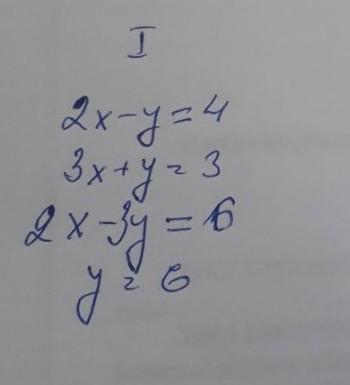 I
2x-y=4
3x+y=3
2x-3y=6
y=6